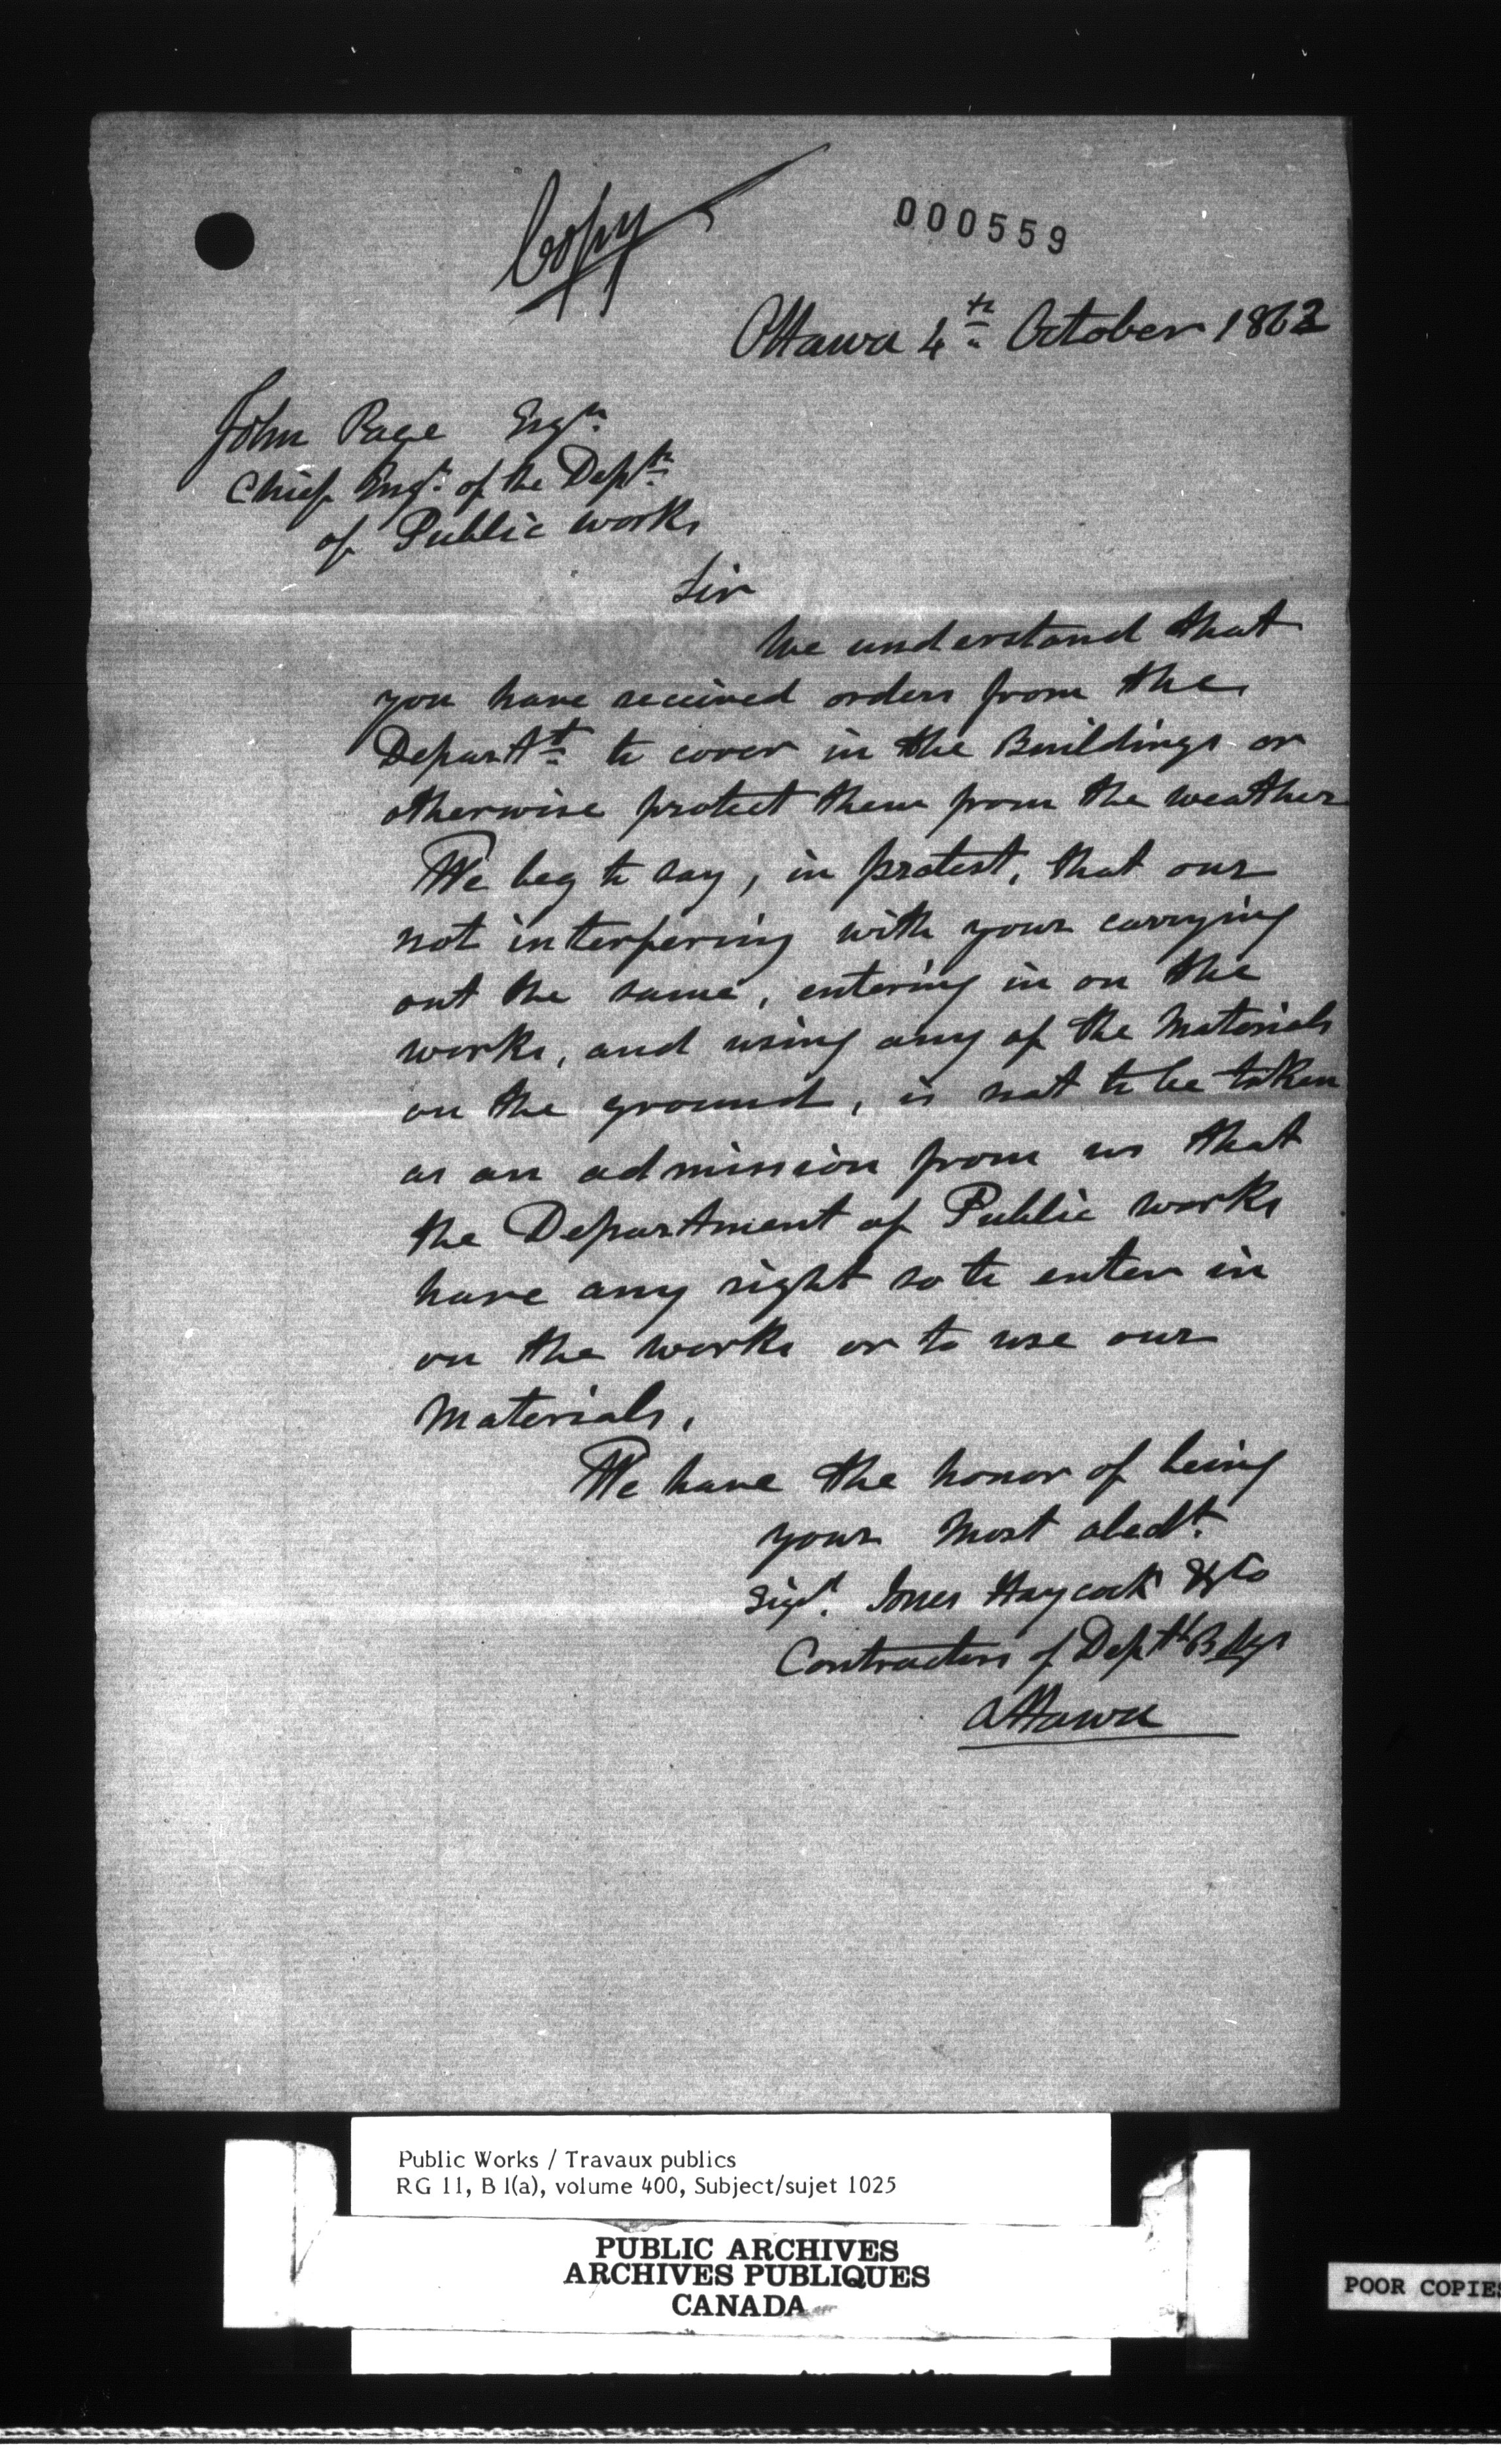 Copy
000559
Ottawa 4th October 1862
John Page Esqr.
Chief Engr. of the Deptt.
of Public works
Sir
We understand that
you have received orders from the
Departt. to cover in the Buildings or
otherwise protect them from the weather
We beg to say, in protest, that our
not interfering with your carrying
out the same, entering in on the
works, and using any of the Materials
on the ground, is not to be taken
as an admission from us that
the Department of Public works
have any right so to enter in
on the works or to use our
Materials.
We have the honor of being
your Most obedt.
Sigd. Jones Haycock & Co
Contractors of Deptl Bldgs
Ottawa
Public Works / Travaux publics
RG 11, B 1(a), volume 400, Subject/sujet 1025
PUBLIC ARCHIVES
ARCHIVES PUBLIQUES
CANADA
POOR COPIES